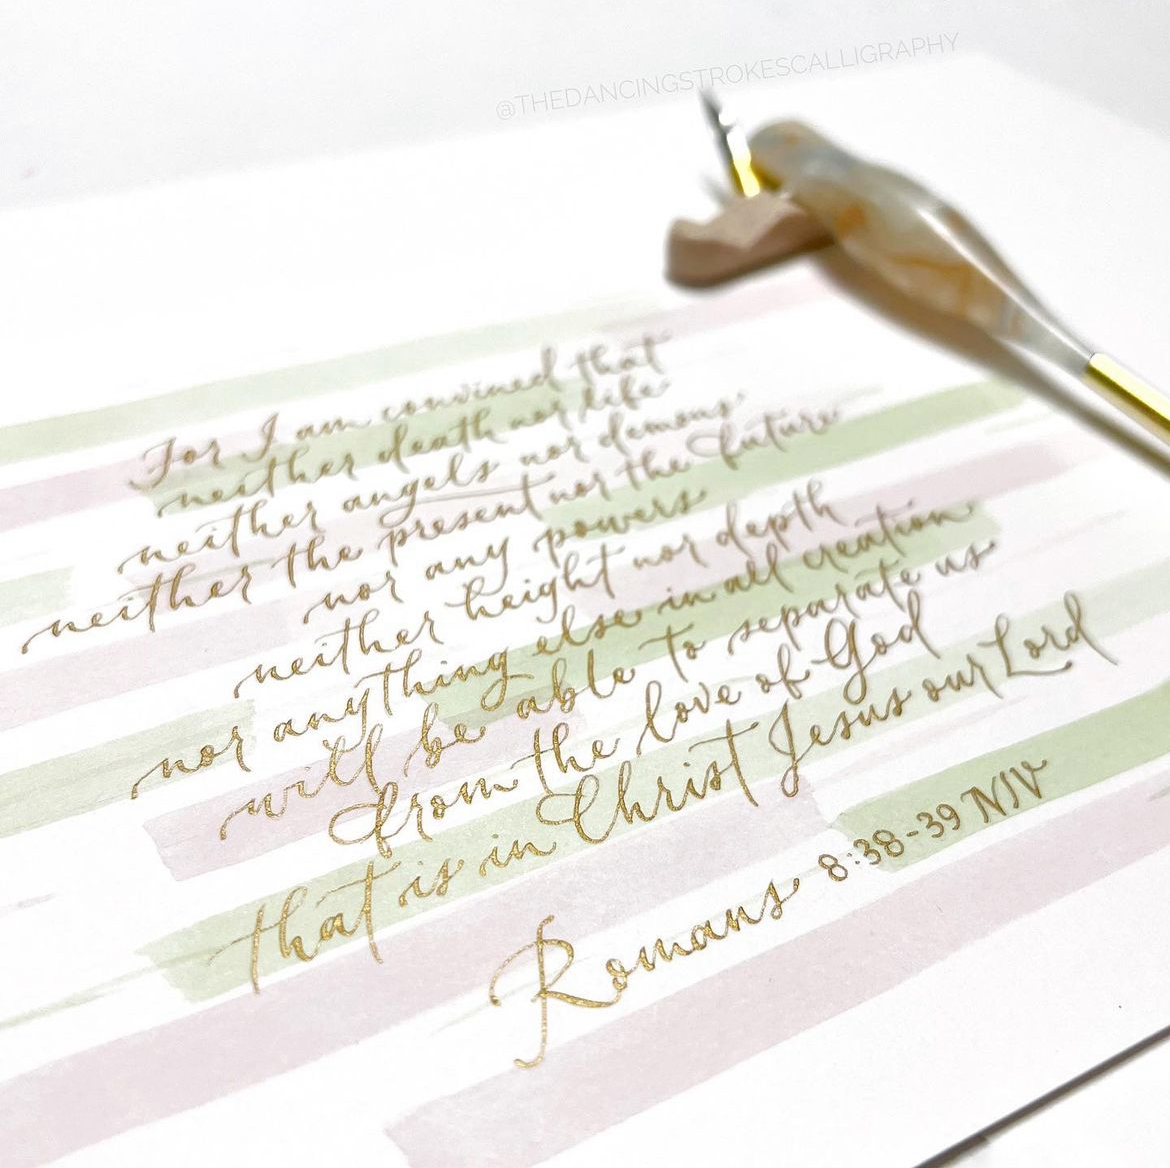 @THEDANCINGSTROKESCALLIGRAPHY
For I am convinced that
neither death nor life
neither angels nor demons
neither the present nor the future
nor any powers
neither height nor depth
nor anything else in all creation
will be able to separate us
from the love of God
that is in Christ Jesus our Lord
Romans 8:38-39 NIV